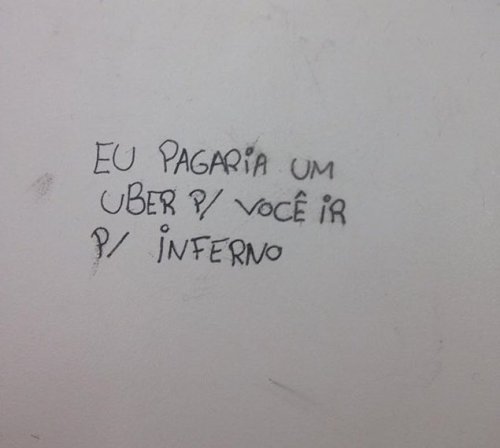 EU PAGARiA UM
UBER P/ VOCÊ iR
P/ iNFERNO